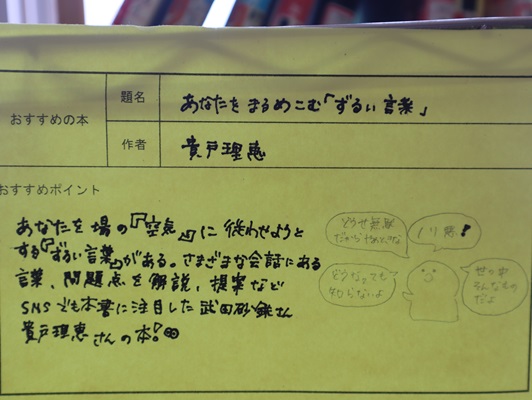 おすすめの本
題名
あなたをまるめこむ「ずるい言葉」
作者
貴戸理恵
おすすめポイント
あなたを場の『空気』に従わせようと
する『ずるい言葉』がある。さまざまな会話にある
言葉、問題点を解説、提案など
SNSでも本書に注目した武田砂鉄さん
貴戸理恵さんの本!
どうせ無駄
だからやめときな
ノリ悪!
どうなっても
知らないよ
世の中
そんなもの
だよ